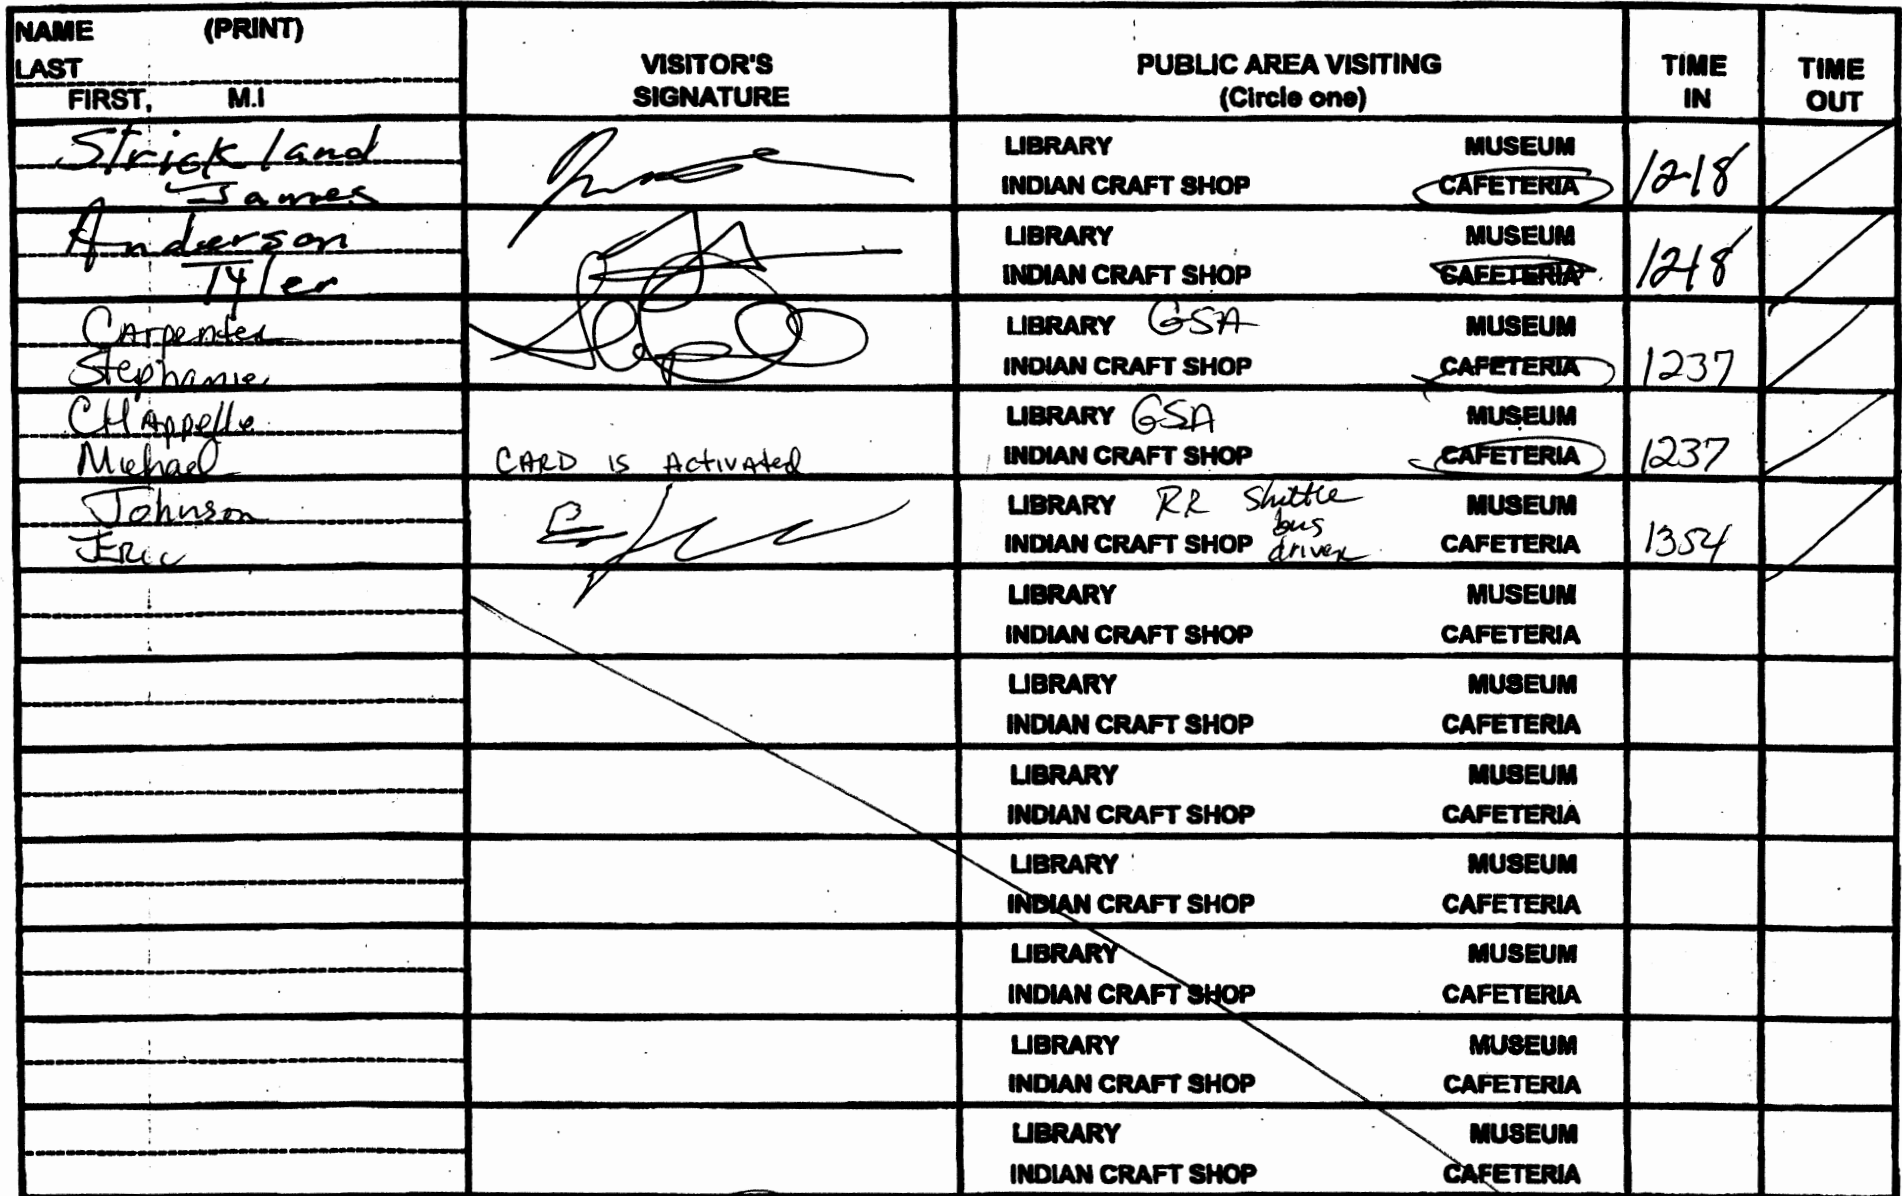 NAME (PRINT)
LAST
FIRST, M.I
VISITOR'S
SIGNATURE
PUBLIC AREA VISITING
(Circle one)
TIME
IN
TIME
OUT
Strickland
James
LIBRARY MUSEUM
INDIAN CRAFT SHOP CAFETERIA
1218
Anderson
Tyler
LIBRARY MUSEUM
INDIAN CRAFT SHOP CAFETERIA
1218
Carpenter
Stephanie
LIBRARY GSA MUSEUM
INDIAN CRAFT SHOP CAFETERIA
1237
CHAppelle
Michael
CARD IS ActivAted
LIBRARY GSA MUSEUM
INDIAN CRAFT SHOP CAFETERIA
1237
Johnson
ERic
LIBRARY RR Shuttle MUSEUM
bus
INDIAN CRAFT SHOP driver CAFETERIA
1354
LIBRARY MUSEUM
INDIAN CRAFT SHOP CAFETERIA
LIBRARY MUSEUM
INDIAN CRAFT SHOP CAFETERIA
LIBRARY MUSEUM
INDIAN CRAFT SHOP CAFETERIA
LIBRARY MUSEUM
INDIAN CRAFT SHOP CAFETERIA
LIBRARY MUSEUM
INDIAN CRAFT SHOP CAFETERIA
LIBRARY MUSEUM
INDIAN CRAFT SHOP CAFETERIA
LIBRARY MUSEUM
INDIAN CRAFT SHOP CAFETERIA